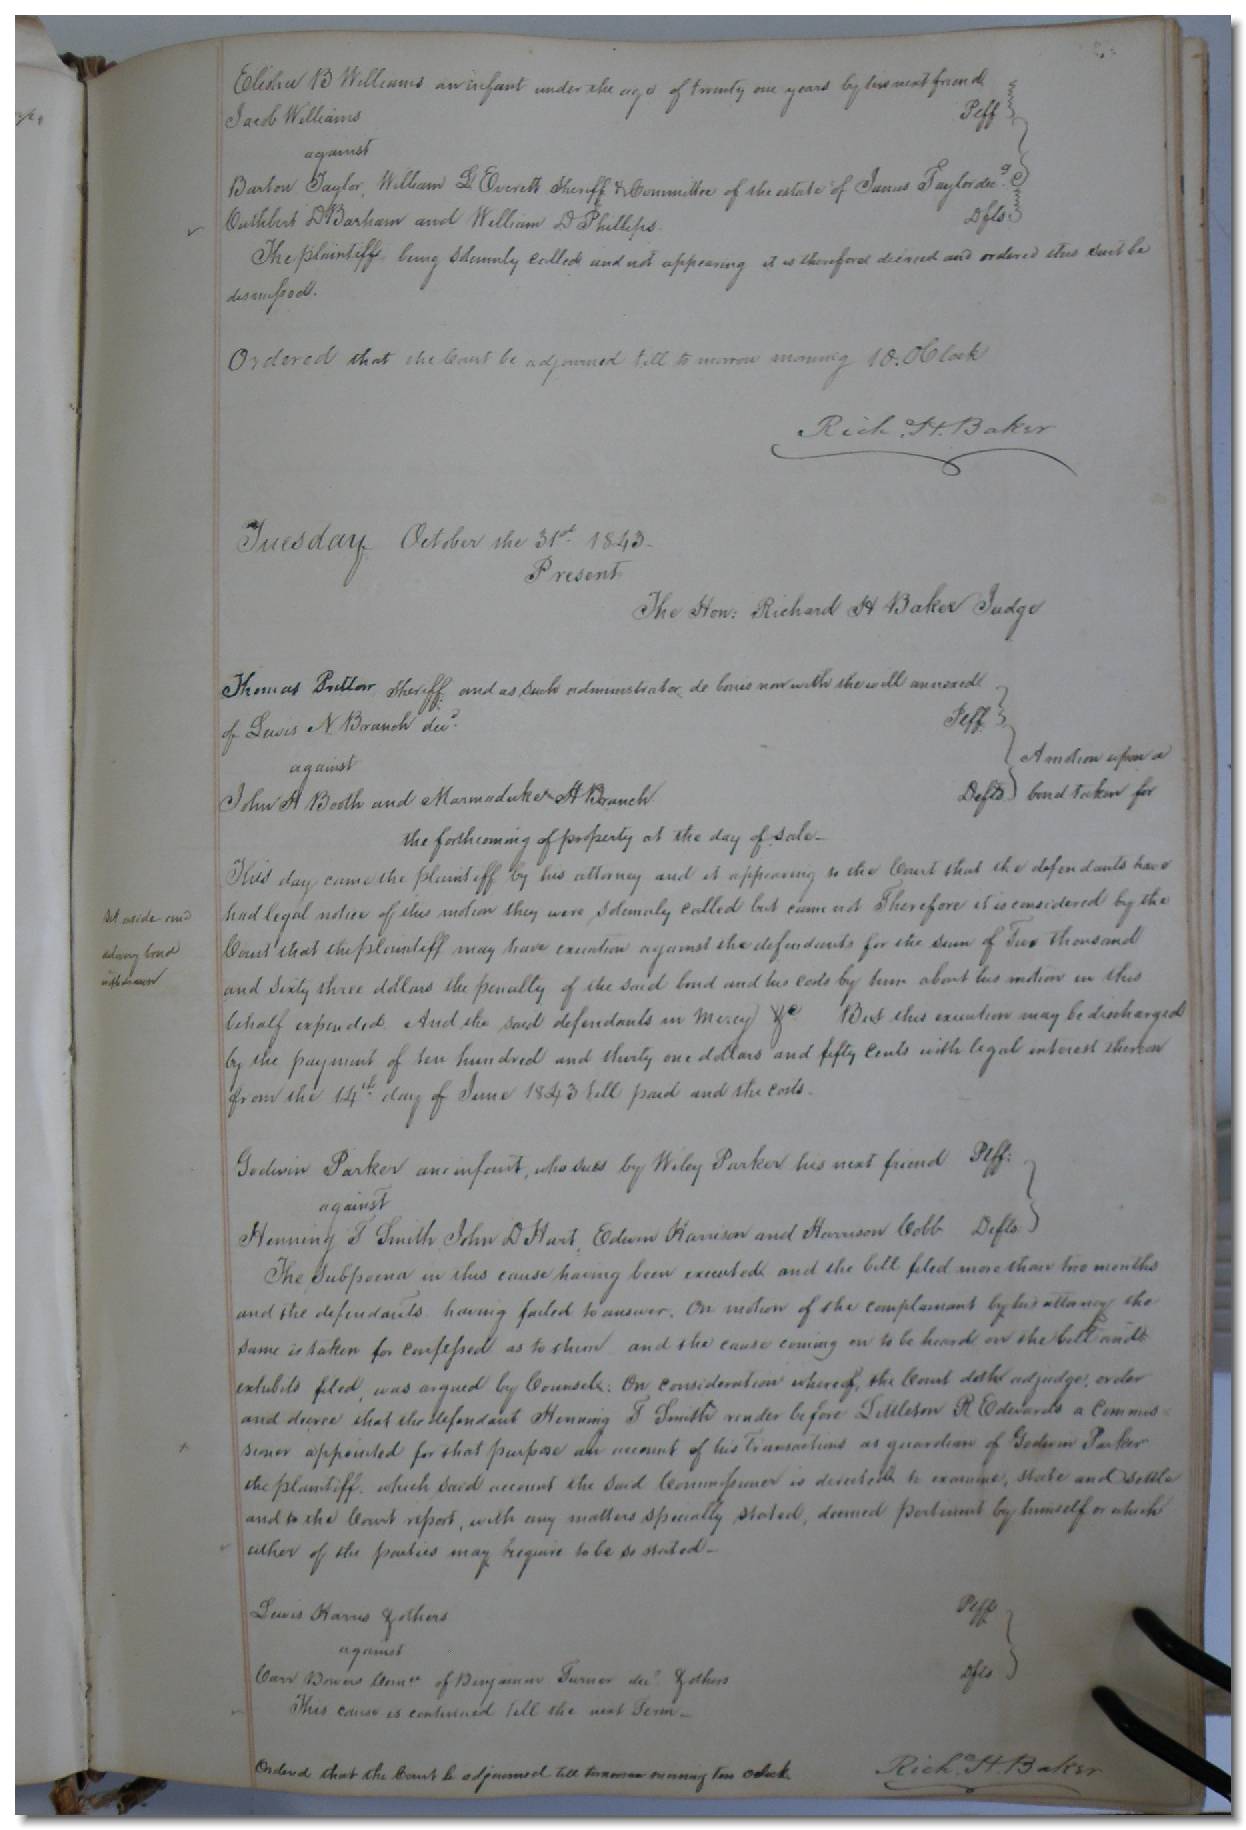 Elisha B Williams an infant under the age of twenty one years by his next friend
Jacob Williams Plff
against
Barton Taylor, William G Everett Sheriff & Committee of the estate of James Taylor decd
Cuthbert D Barham and William D Phillips Dfts
The plaintiff being solemnly called and not appearing it is therefore decreed and ordered this suit be
dismissed.
Ordered that the Court be adjourned till to morrow morning 10. OClock
Rich. H. Baker
Tuesday October the 31st 1843
Present
The Hon: Richard H Baker Judge
Thomas Pretlow Sheriff and as such administrator de bonis non with the will annexed
of Lewis N Branch decd Plff
against
A motion upon a
John H Booth and Marmaduke H Branch Defts bond taken for
the forthcoming of property at the day of sale
This day came the plaintiff by his attorney and it appearing to the Court that the defendants have
had legal notice of this motion they were solemnly called but came not Therefore it is considered by the
set aside and
Court that the plaintiff may have execution against the defendants for the sum of Two thousand
bond
and sixty three dollars the penalty of the said bond and his costs by him about his motion in this
withdrawn
behalf expended. And the said defendants in Mercy &c But this execution may be discharged
by the payment of ten hundred and thirty one dollars and fifty cents with legal interest thereon
from the 14th day of June 1843 till paid and the costs.
Godwin Parker an infant, who sues by Wiley Parker his next friend Plff:
against
Henning T Smith John D Hart, Edwin Harrison and Harrison Cobb Defts
The Subpoena in this cause having been executed and the bill filed more than two months
and the defendants having failed to answer. On motion of the complainant by his attorney the
same is taken for confessed as to them and the cause coming on to be heard on the bill and
exhibits filed, was argued by Counsel: On consideration whereof, the Court doth adjudge, order
and decree that the defendant Henning T Smith render before Littleton R Edwards a Commis-
sioner appointed for that purpose an account of his transactions as guardian of Godwin Parker
the plaintiff. which said account the said Commissioner is directed to examine, state and settle
and to the Court report, with any matters specially stated, deemed pertinent by himself or which
either of the parties may require to be so stated
Lewis Harris & others Plffs
against
Carr Bowers Admr of Benjamin Turner decd & others Dfts
This cause is continued till the next Term
Ordered that the Court be adjourned till tomorrow morning ten oclock
Rich. H. Baker